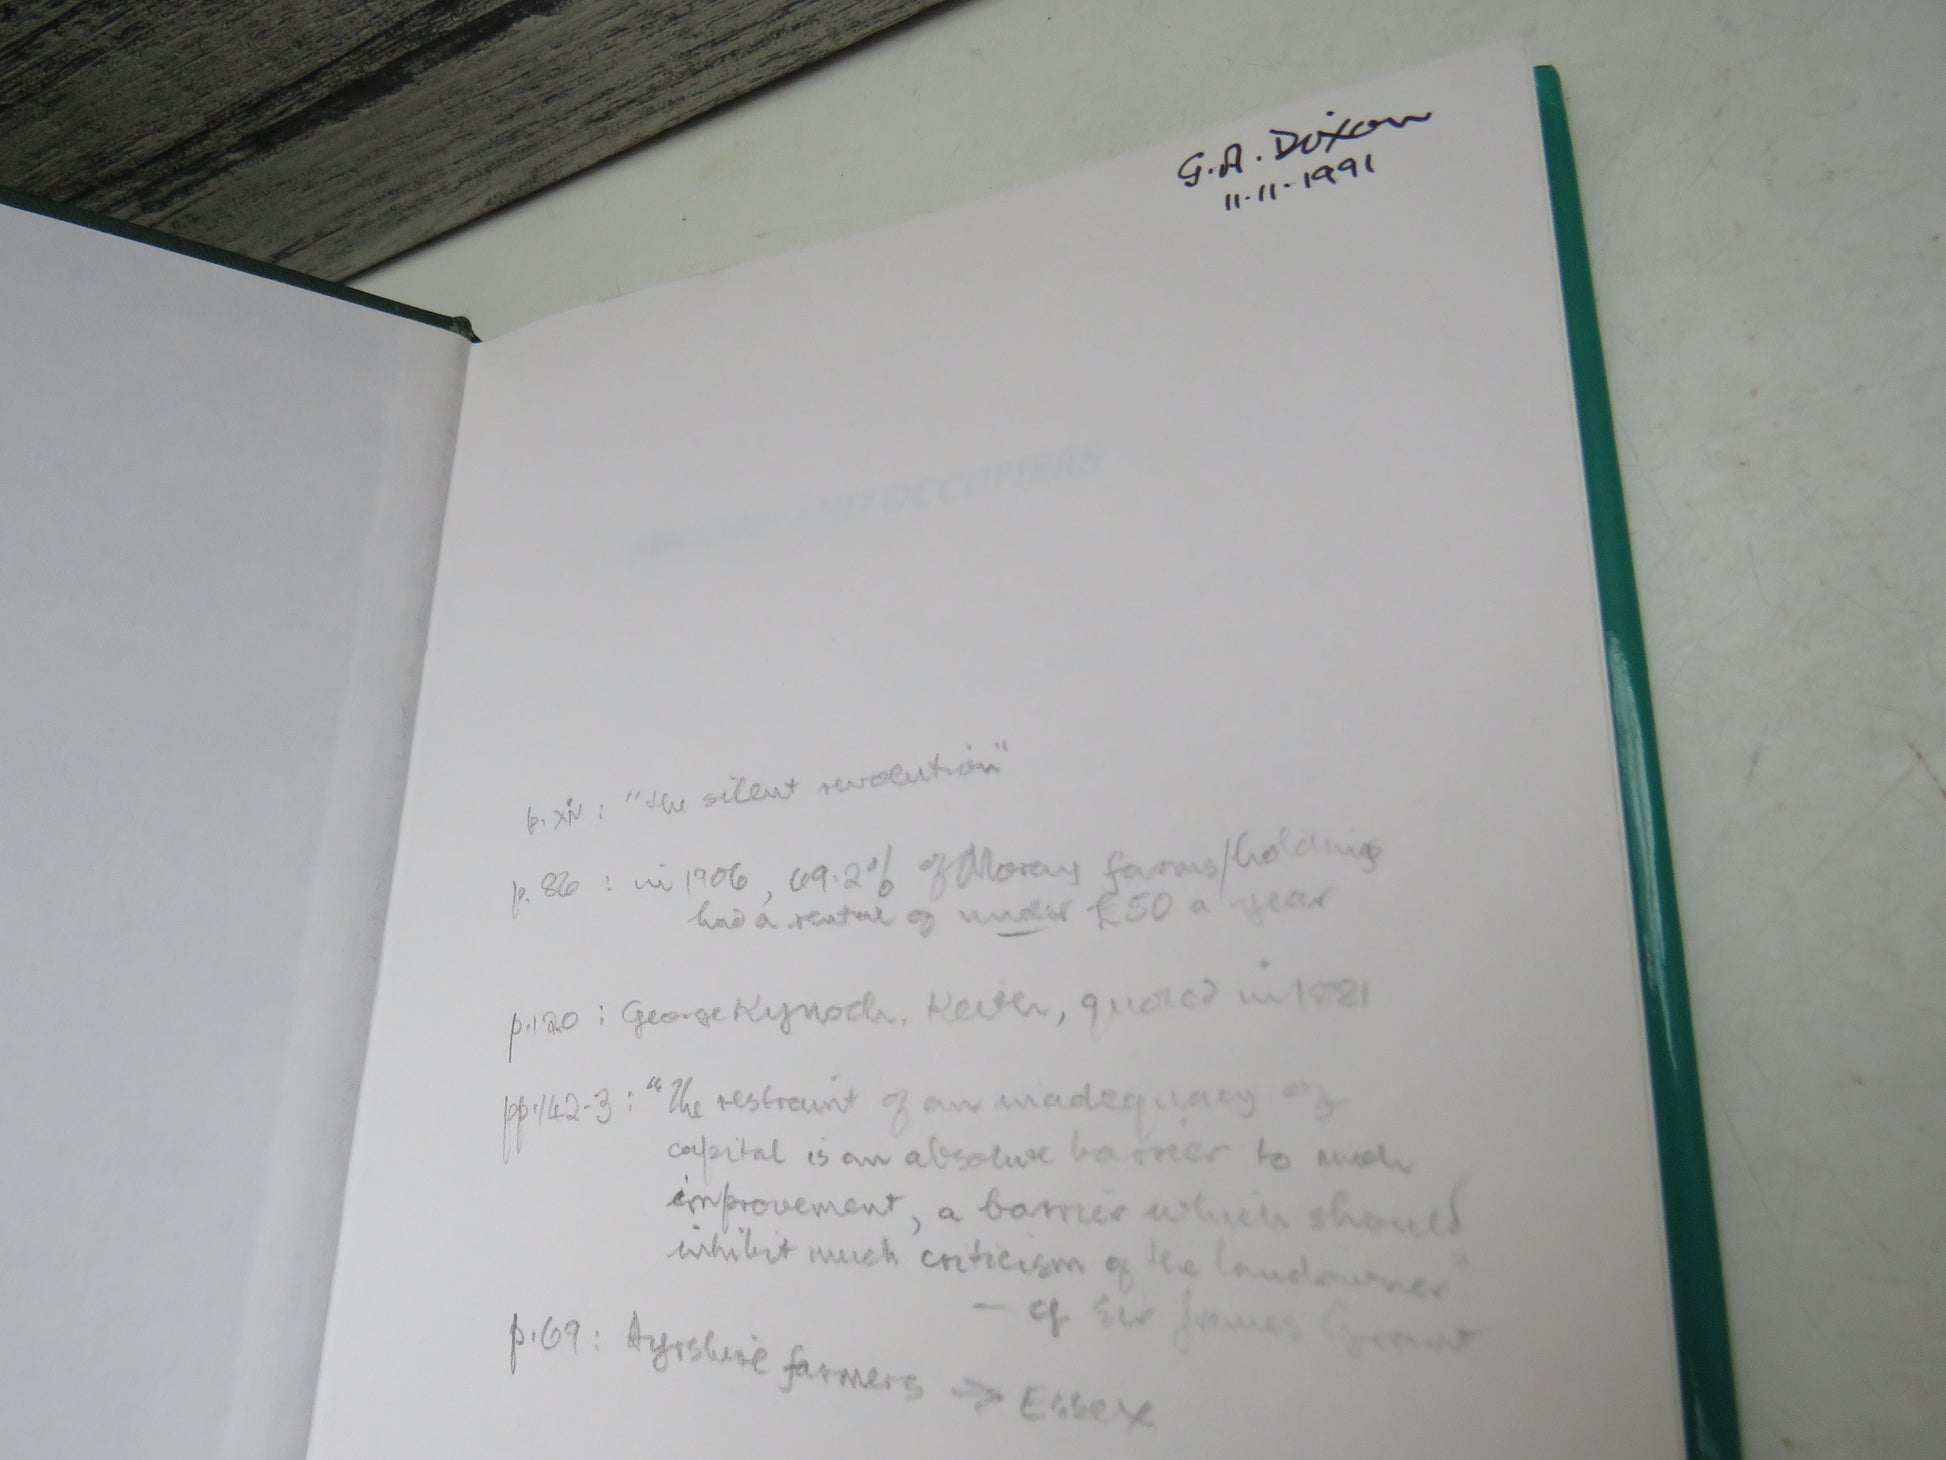 G.A. Dixon
11.11.1991
AND OCCUPIERS
p. xiv : "the silent revolution"
p. 86 : in 1906, 69.2% of Moray farms/holdings
had a rental of under £50 a year
p.120 : George Kynoch, Keith, quoted in 1881
pp.142-3 : "The restraint of an inadequacy of
capital is an absolute barrier to much
improvement, a barrier which should
inhibit much criticism of the landowner"
— cf Sir James Grant
p.69 : Ayrshire farmers → Essex